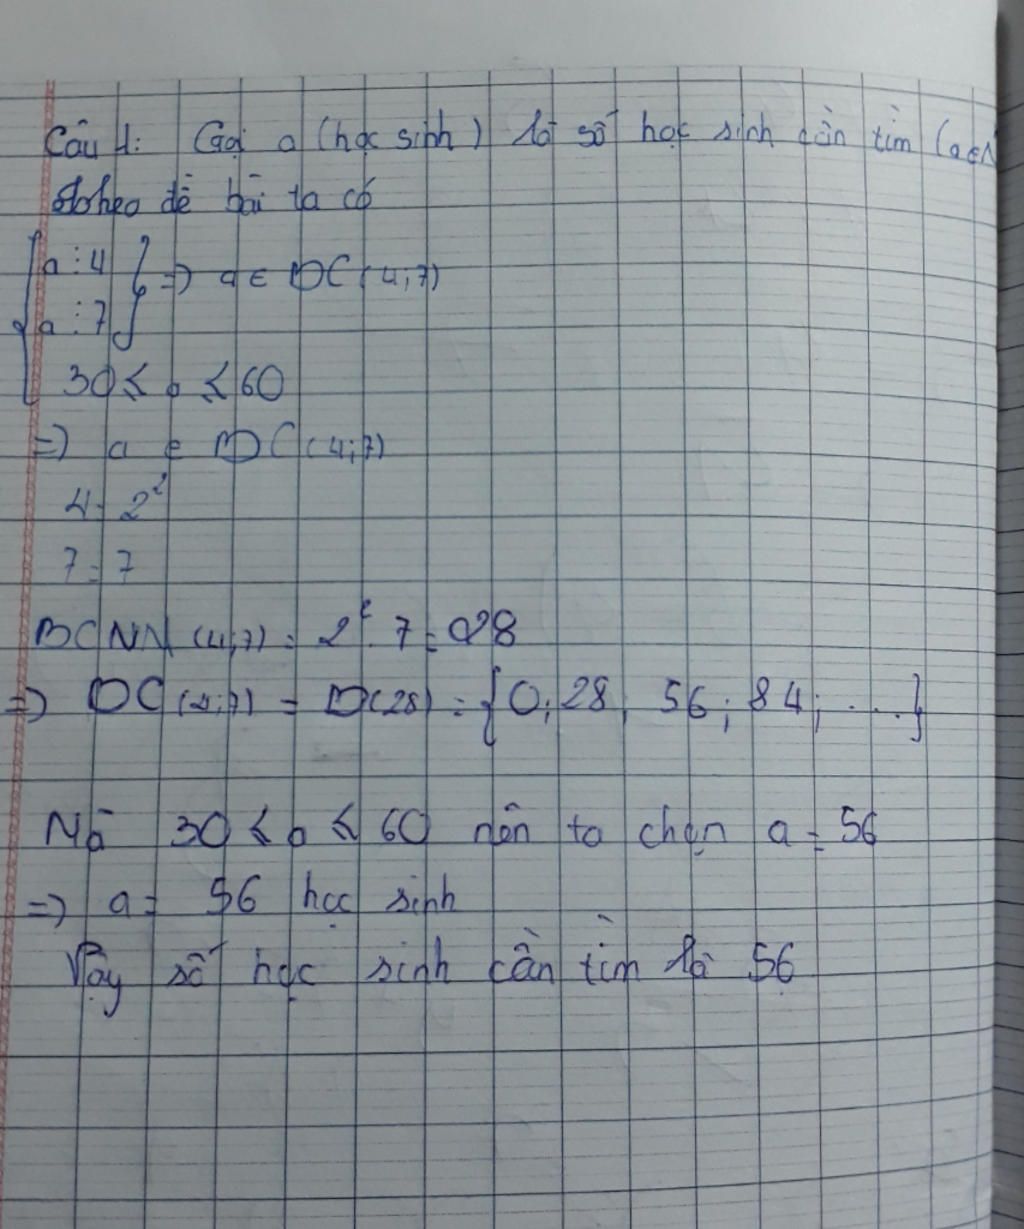 Câu 1: Gọi a (học sinh) là số học sinh cần tìm (a∈N
theo đề bài ta có
a ⋮ 4 } => a ∈ BC (4;7)
a ⋮ 7
30 ≤ a ≤ 60
=> a ∈ BC (4;7)
4 = 2²
7 = 7
BCNN (4;7) = 2² . 7 = 28
=> BC (4;7) = B(28) = {0; 28; 56; 84; ....}
Mà 30 ≤ a ≤ 60 nên ta chọn a = 56
=> a = 56 học sinh
Vậy số học sinh cần tìm là 56